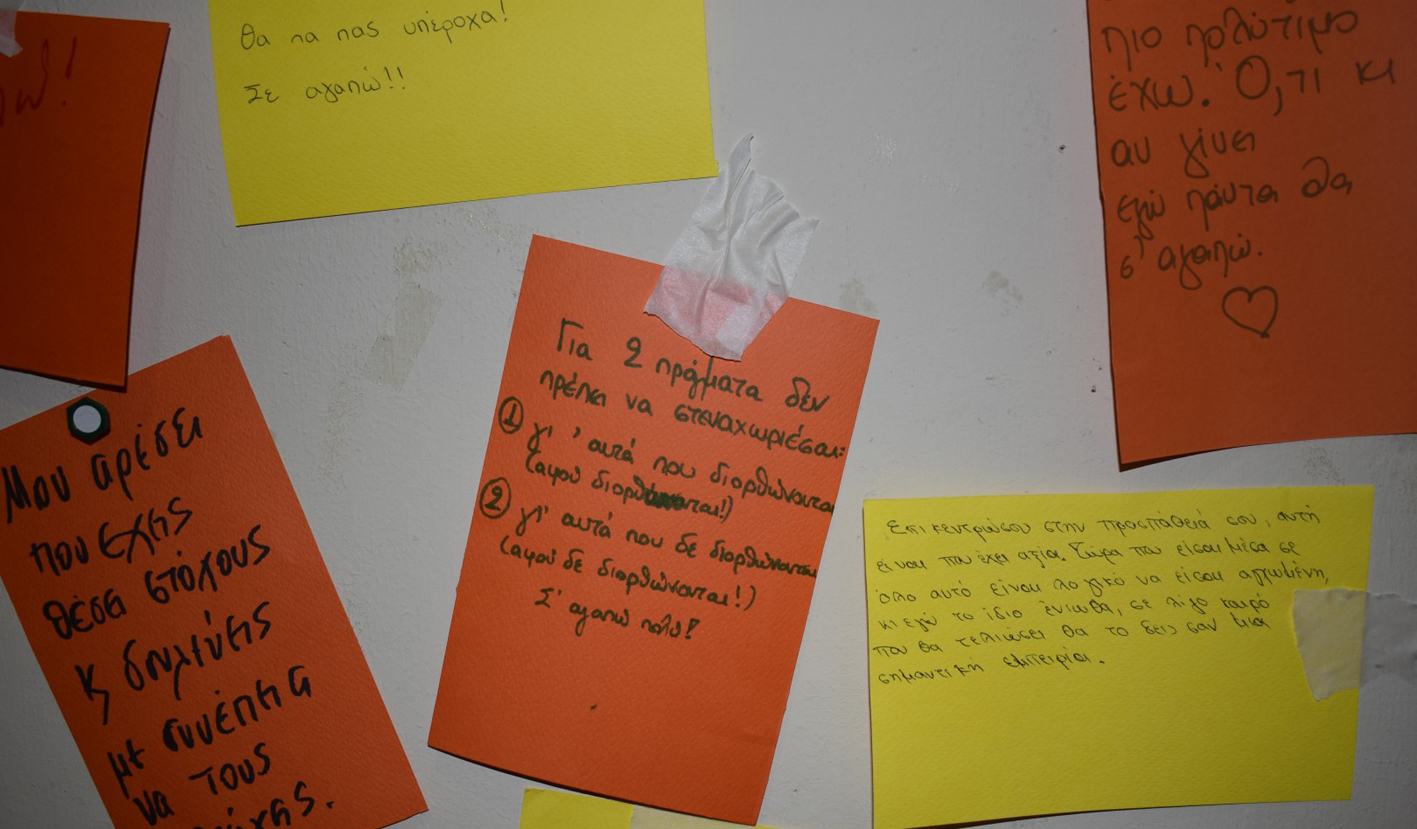 θα πα πας υπέροχα!
Σε αγαπώ!!
πιο πολύτιμο
έχω. Ό,τι κι
αν γίνει
εγώ πάντα θα
σ' αγαπώ.
Μου αρέσει
που έχης
θέσει στόχους
κ δουλεύεις
με συνέπεια
να τους
Για 2 πράγματα δεν
πρέπει να στεναχωριέσαι:
① γι' αυτά που διορθώνονται
(αφού διορθώνονται!)
② γι' αυτά που δε διορθώνονται
(αφού δε διορθώνονται!)
Σ' αγαπώ πολύ!
Επικεντρώσου στην προσπάθειά σου, αυτή
είναι που έχει αξία. Τώρα που είσαι μέσα σε
όλο αυτό είναι λογικό να είσαι αγχωμένη,
κι εγώ το ίδιο ένιωθα, σε λίγο καιρό
που θα τελειώσει θα το δεις σαν μια
σημαντική εμπειρία.